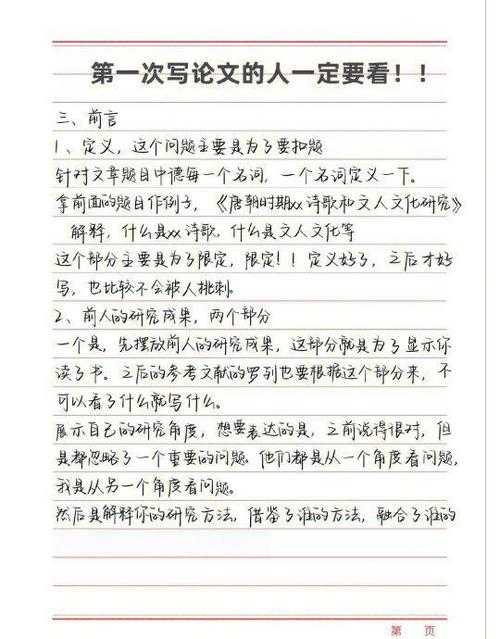 第一次写论文的人一定要看！！
三、前言
1、定义，这个问题主要是为了要扣题
针对文章题目中德每一个名词，一个名词定义一下。
拿前面的题目作例子，《唐朝时期xx诗歌和文人文化研究》
解释，什么是xx诗歌，什么是文人文化等
这个部分主要是为了限定，限定！！定义好了，之后才好
写，也比较不会被人批刺。
2、前人的研究成果，两个部分
一个是，先摆放前人的研究成果，这部分就是为了显示你
读了书。之后的参考文献的罗列也要根据这个部分来，不
可以看了什么就写什么。
展示自己的研究角度，想要表达的是，之前说得很对，但
是都忽略了一个重要的问题，他们都是从一个角度看问题，
我是从另一个角度看问题。
然后是解释你的研究方法，借鉴了谁的方法，融合了谁的
第 页